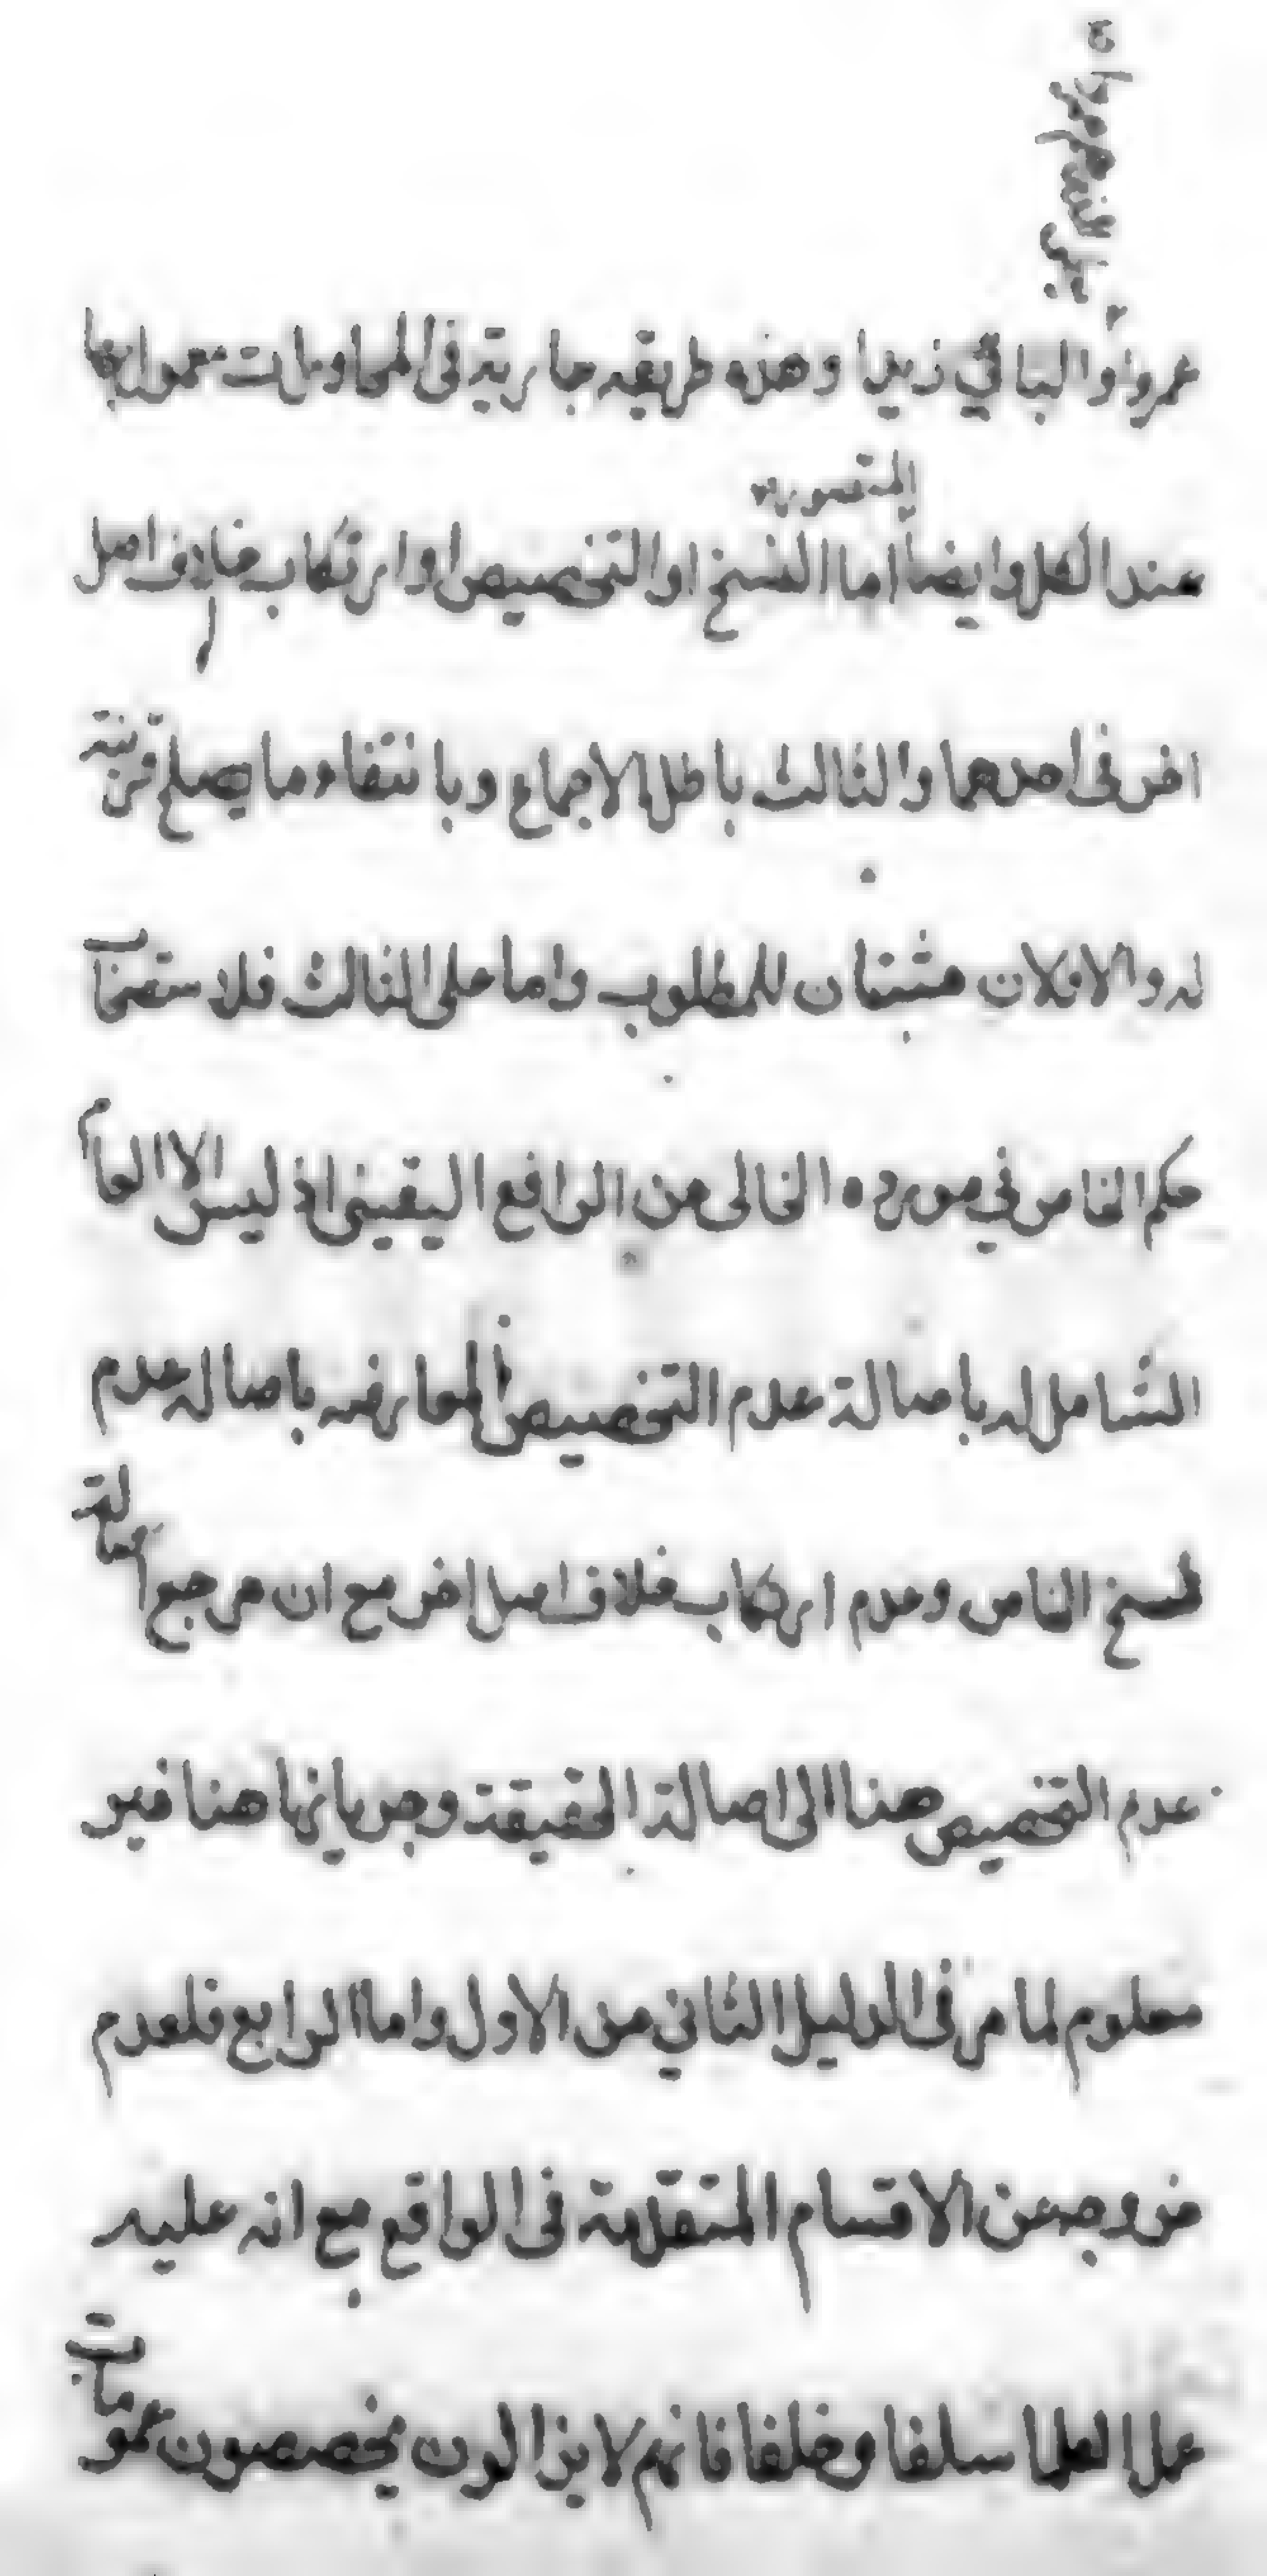 عمروا والباقي زيدا وهذه طريقه جارية في المحاورات معمول بها
عند الكل وايضا اما النسخ او التخصيص او ارتكاب خلاف اصل
المتصور
اخر في احدهما والثالث باطل الاجماع وبا نتفاء ما يصلح قرينة
له والاولان مثبتان للمطلوب واما على الثالث فلاستصحاب
حكم الخاص في مورده الخالى من الرافع اليقينى اذ ليس الا العام
الشامل له باصالة عدم التخصيص المعارضه باصالة عدم
نسخ الخاص وعدم ارتكاب خلاف اصل اخر مع ان مرجع اصالة
عدم التخصيص هنا الى اصالة الحقيقة وجريانها هنا غير
معلوم لما مر في الدليل الثاني من الاول واما الرابع فلعدم
خروجه عن الاقسام المتقدمة في الواقع مع انه عليه
عمل العلما سلفا وخلفا فانهم لا يزالون يخصصون عمومات